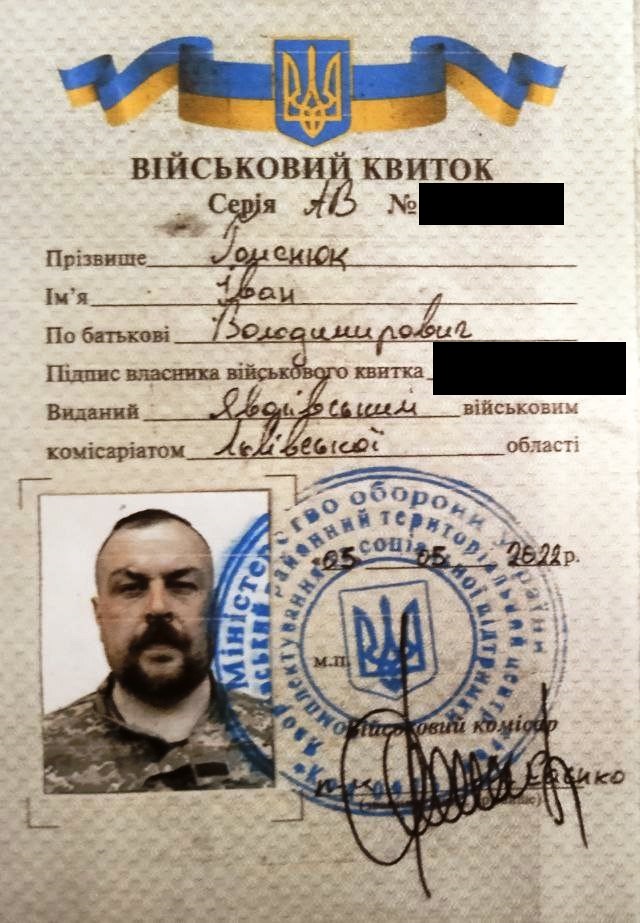 ВІЙСЬКОВИЙ КВИТОК
Серія АВ №
Прізвище
Ім'я Іван
По батькові Володимирович
Підпис власника військового квитка
Виданий військовим
комісаріатом Львівської області
05 05 2022 р.
Міністерство оборони України
районний територіальний центр
комплектування та соціальної підтримки
м.п.
Військовий комісар